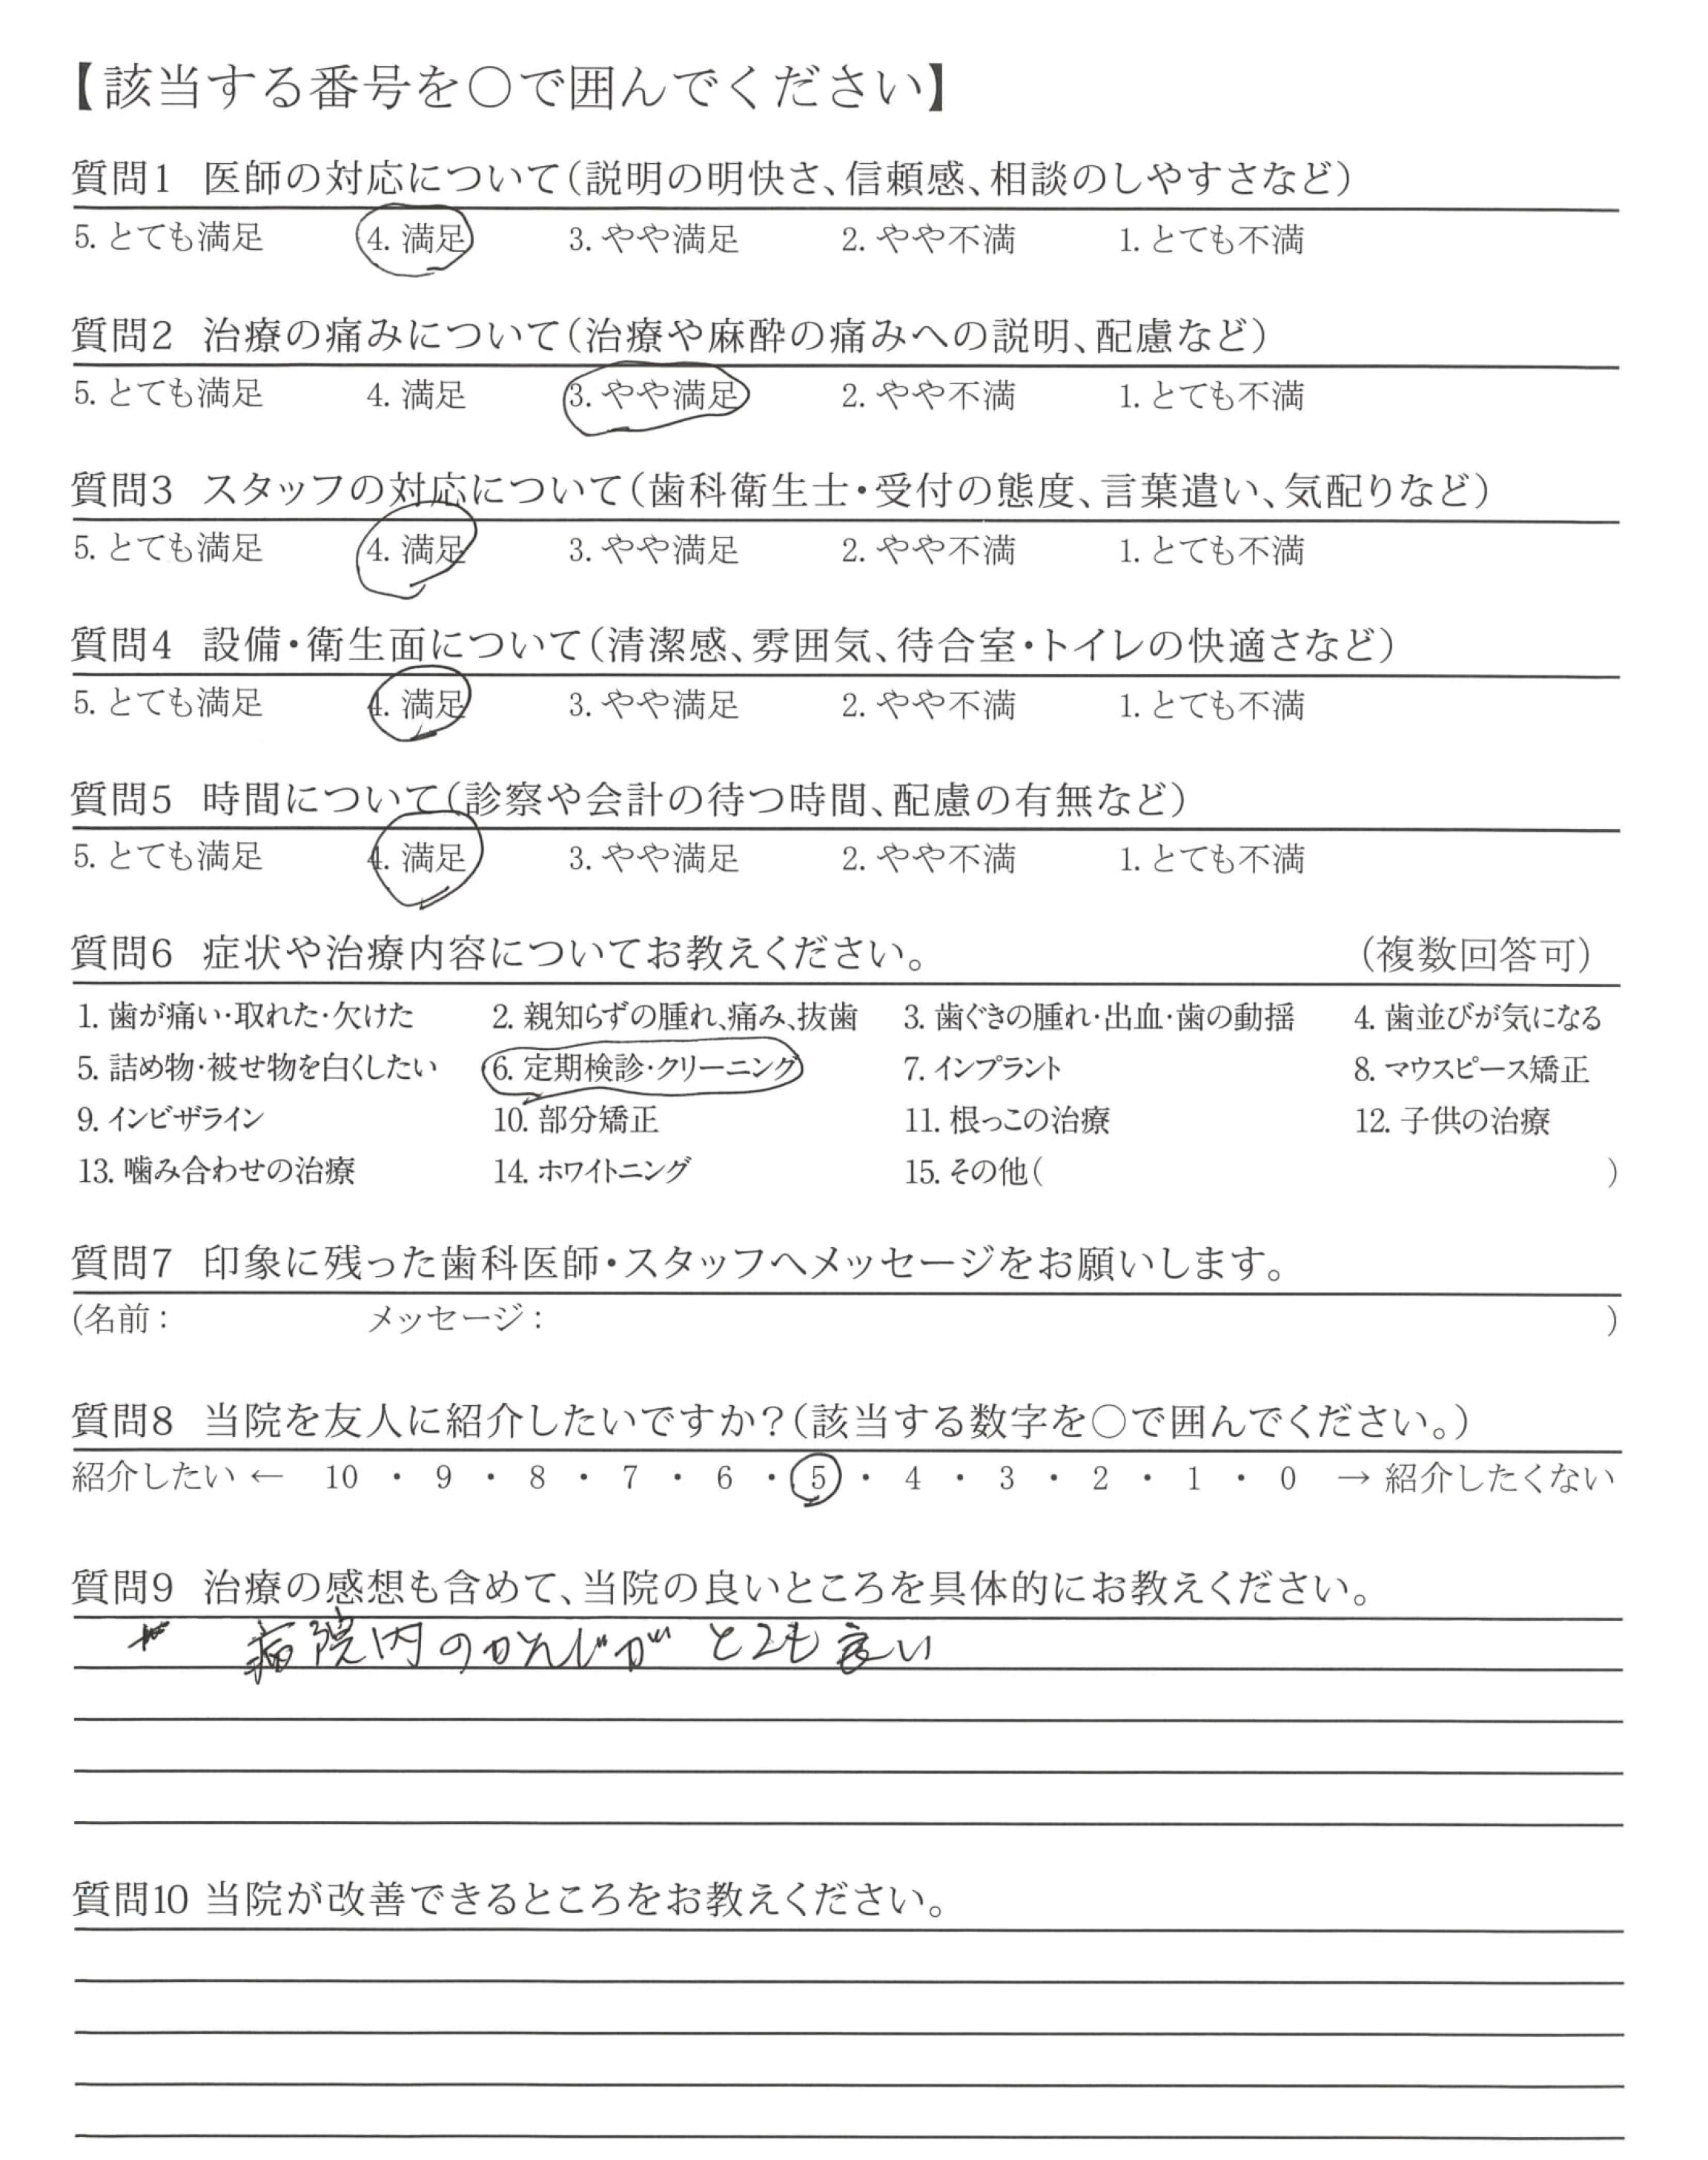 【該当する番号を〇で囲んでください】
質問1 医師の対応について(説明の明快さ、信頼感、相談のしやすさなど)
5. とても満足 4. 満足 3. やや満足 2. やや不満 1. とても不満
質問2 治療の痛みについて(治療や麻酔の痛みへの説明、配慮など)
5. とても満足 4. 満足 3. やや満足 2. やや不満 1. とても不満
質問3 スタッフの対応について(歯科衛生士・受付の態度、言葉遣い、気配りなど)
5. とても満足 4. 満足 3. やや満足 2. やや不満 1. とても不満
質問4 設備・衛生面について(清潔感、雰囲気、待合室・トイレの快適さなど)
5. とても満足 4. 満足 3. やや満足 2. やや不満 1. とても不満
質問5 時間について(診察や会計の待つ時間、配慮の有無など)
5. とても満足 4. 満足 3. やや満足 2. やや不満 1. とても不満
質問6 症状や治療内容についてお教えください。 (複数回答可)
1. 歯が痛い・取れた・欠けた 2. 親知らずの腫れ、痛み、抜歯 3. 歯ぐきの腫れ・出血・歯の動揺 4. 歯並びが気になる
5. 詰め物・被せ物を白くしたい 6. 定期検診・クリーニング 7. インプラント 8. マウスピース矯正
9. インビザライン 10. 部分矯正 11. 根っこの治療 12. 子供の治療
13. 噛み合わせの治療 14. ホワイトニング 15. その他( )
質問7 印象に残った歯科医師・スタッフへメッセージをお願いします。
(名前: メッセージ: )
質問8 当院を友人に紹介したいですか?(該当する数字を〇で囲んでください。)
紹介したい ← 10 ・ 9 ・ 8 ・ 7 ・ 6 ・ 5 ・ 4 ・ 3 ・ 2 ・ 1 ・ 0 → 紹介したくない
質問9 治療の感想も含めて、当院の良いところを具体的にお教えください。
病院内のかんじが とても良い
質問10 当院が改善できるところをお教えください。